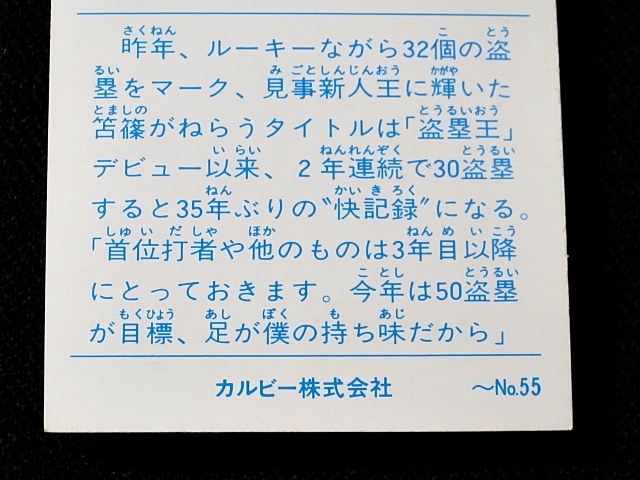 昨年、ルーキーながら32個の盗
塁をマーク、見事新人王に輝いた
笘篠がねらうタイトルは「盗塁王」
デビュー以来、2年連続で30盗塁
すると35年ぶりの"快記録"になる。
「首位打者や他のものは3年目以降
にとっておきます。今年は50盗塁
が目標、足が僕の持ち味だから」
カルビー株式会社 〜No.55